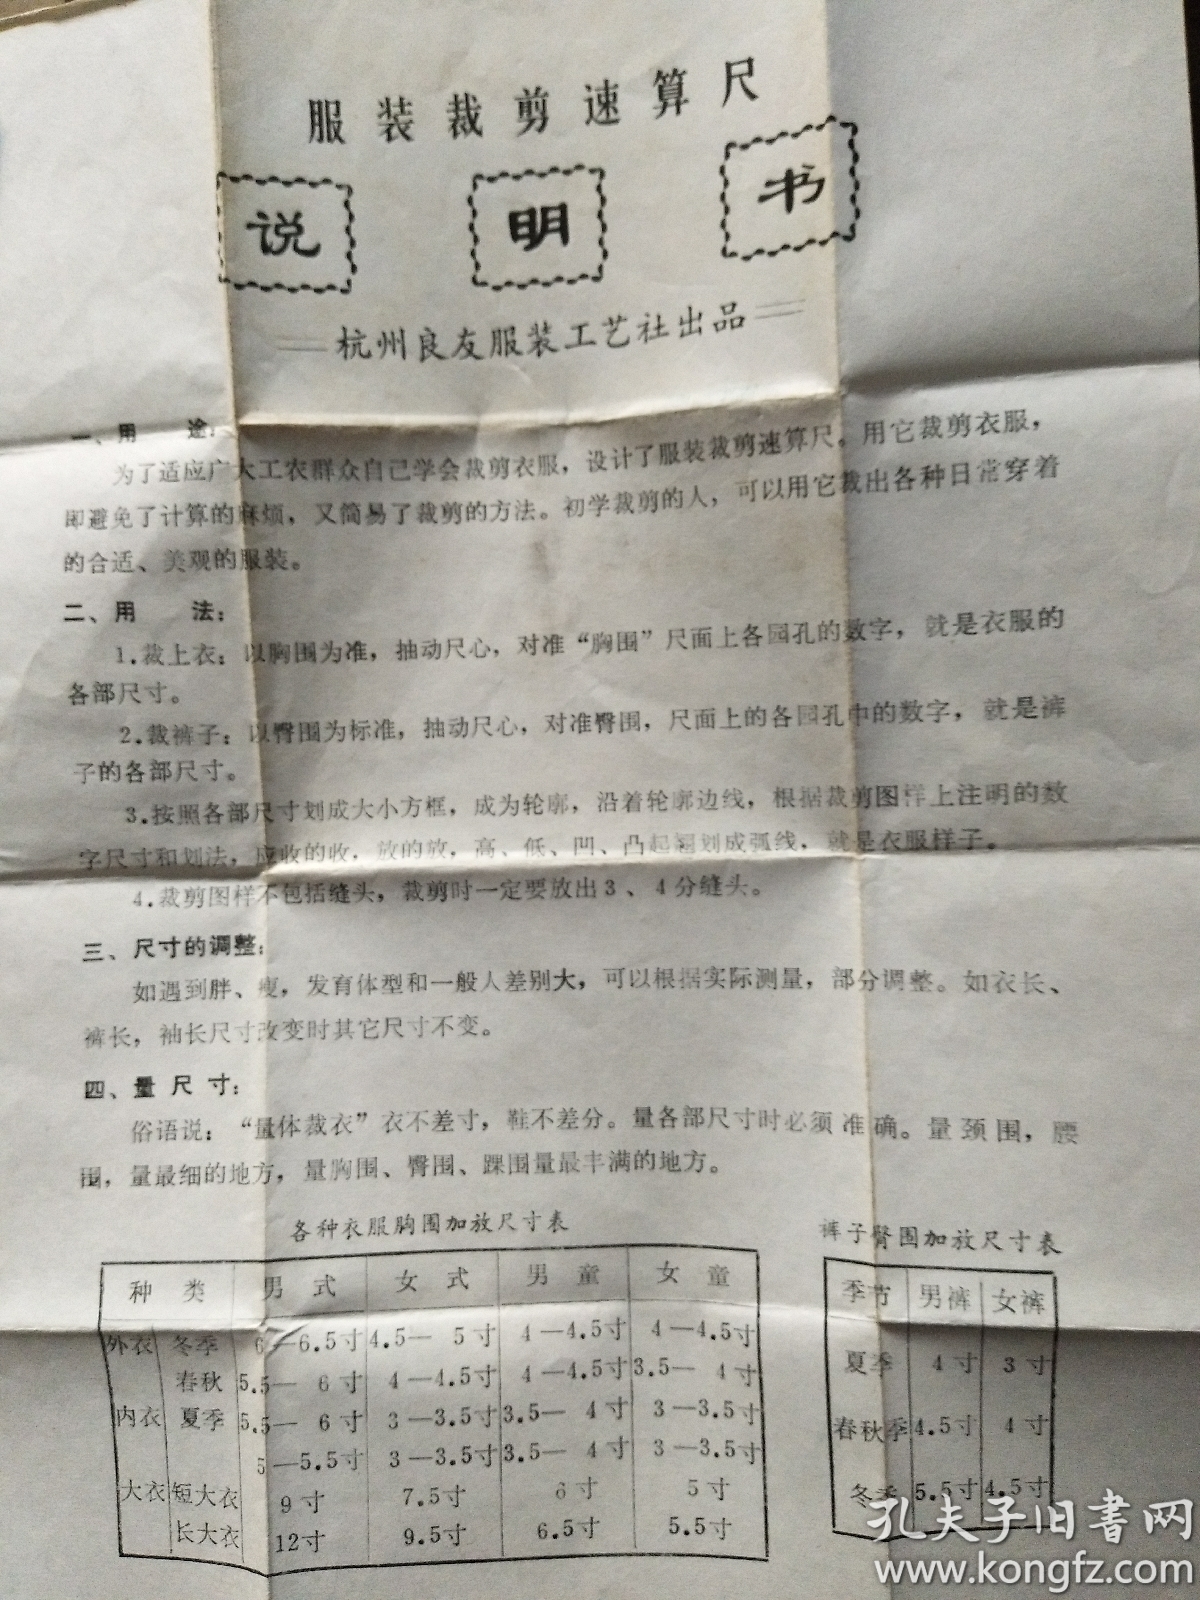 服装裁剪速算尺
说明书
杭州良友服装工艺社出品
一、用　　途：
为了适应广大工农群众自己学会裁剪衣服，设计了服装裁剪速算尺。用它裁剪衣服，
即避免了计算的麻烦，又简易了裁剪的方法。初学裁剪的人，可以用它裁出各种日常穿着
的合适、美观的服装。
二、用　　法：
1.裁上衣：以胸围为准，抽动尺心，对准“胸围”尺面上各园孔的数字，就是衣服的
各部尺寸。
2.裁裤子：以臀围为标准，抽动尺心，对准臀围，尺面上的各园孔中的数字，就是裤
子的各部尺寸。
3.按照各部尺寸划成大小方框，成为轮廓，沿着轮廓边线，根据裁剪图样上注明的数
字尺寸和划法，应收的收，放的放，高、低、凹、凸起翘划成弧线，就是衣服样子。
4.裁剪图样不包括缝头，裁剪时一定要放出3、4分缝头。
三、尺寸的调整：
如遇到胖、瘦，发育体型和一般人差别大，可以根据实际测量，部分调整。如衣长、
裤长，袖长尺寸改变时其它尺寸不变。
四、量 尺 寸：
俗语说：“量体裁衣”衣不差寸，鞋不差分。量各部尺寸时必须准确。量颈围，腰
围，量最细的地方，量胸围、臀围、踝围量最丰满的地方。
各种衣服胸围加放尺寸表
种　类 男　式 女　式 男　童 女　童
外衣 冬季 6—6.5寸 4.5— 5寸 4—4.5寸 4—4.5寸
春秋 5.5— 6寸 4—4.5寸 4—4.5寸 3.5— 4寸
内衣 夏季 5.5— 6寸 3—3.5寸 3.5— 4寸 3—3.5寸
5—5.5寸 3—3.5寸 3.5— 4寸 3—3.5寸
大衣 短大衣 9寸 7.5寸 6寸 5寸
长大衣 12寸 9.5寸 6.5寸 5.5寸
裤子臀围加放尺寸表
季节 男裤 女裤
夏季 4寸 3寸
春秋季 4.5寸 4寸
冬季 5.5寸 4.5寸
孔夫子旧書网
www.kongfz.com